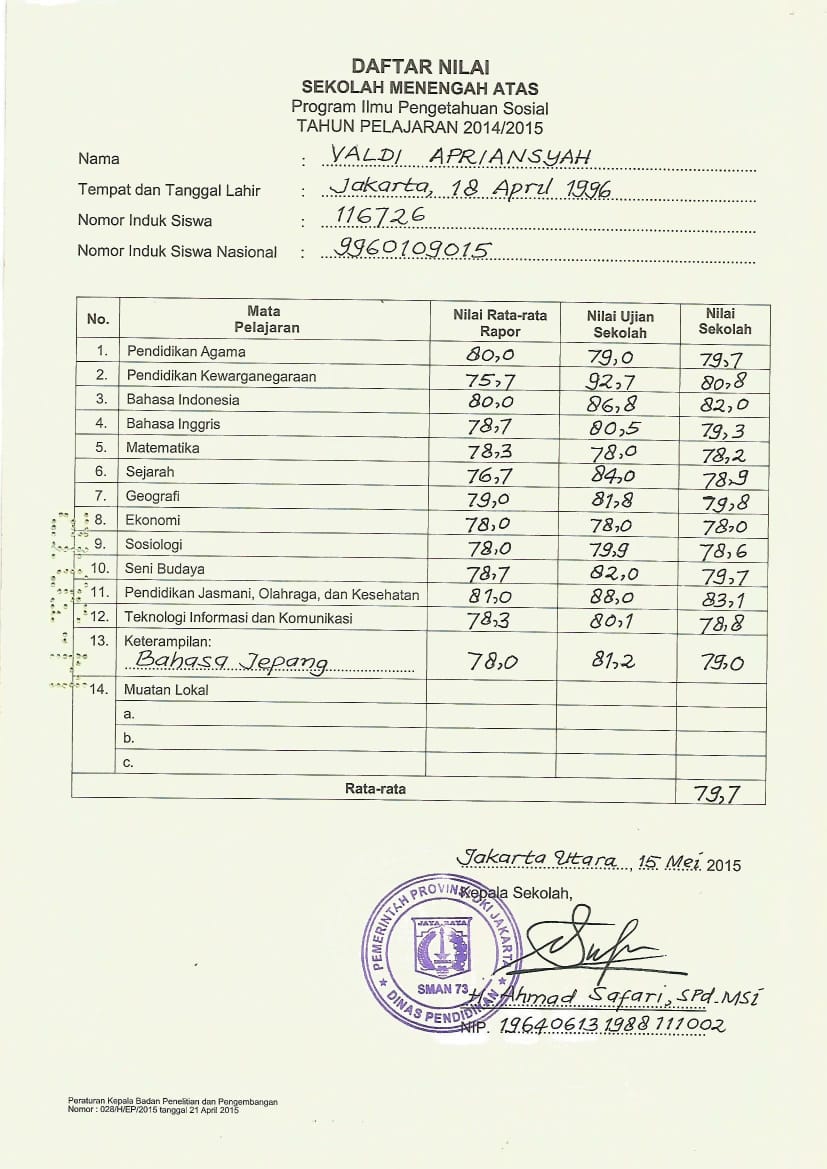 DAFTAR NILAI
SEKOLAH MENENGAH ATAS
Program Ilmu Pengetahuan Sosial
TAHUN PELAJARAN 2014/2015
Nama : VALDI APRIANSYAH
Tempat dan Tanggal Lahir : Jakarta, 18 April 1996
Nomor Induk Siswa : 116726
Nomor Induk Siswa Nasional : 9960109015
No. Mata Pelajaran Nilai Rata-rata Rapor Nilai Ujian Sekolah Nilai Sekolah
1. Pendidikan Agama 80,0 79,0 79,7
2. Pendidikan Kewarganegaraan 75,7 92,7 80,8
3. Bahasa Indonesia 80,0 86,8 82,0
4. Bahasa Inggris 78,7 80,5 79,3
5. Matematika 78,3 78,0 78,2
6. Sejarah 76,7 84,0 78,9
7. Geografi 79,0 81,8 79,8
8. Ekonomi 78,0 78,0 78,0
9. Sosiologi 78,0 79,9 78,6
10. Seni Budaya 78,7 82,0 79,7
11. Pendidikan Jasmani, Olahraga, dan Kesehatan 81,0 88,0 83,1
12. Teknologi Informasi dan Komunikasi 78,3 80,1 78,8
13. Keterampilan:
Bahasa Jepang 78,0 81,2 79,0
14. Muatan Lokal
a.
b.
c.
Rata-rata 79,7
Jakarta Utara, 15 Mei 2015
Kepala Sekolah,
PEMERINTAH PROVINSI DKI JAKARTA
JAYA RAYA
SMAN 73
DINAS PENDIDIKAN
H. Ahmad Safari, SPd.MSi
NIP. 19640613 1988 111002
Peraturan Kepala Badan Penelitian dan Pengembangan
Nomor : 028/H/EP/2015 tanggal 21 April 2015